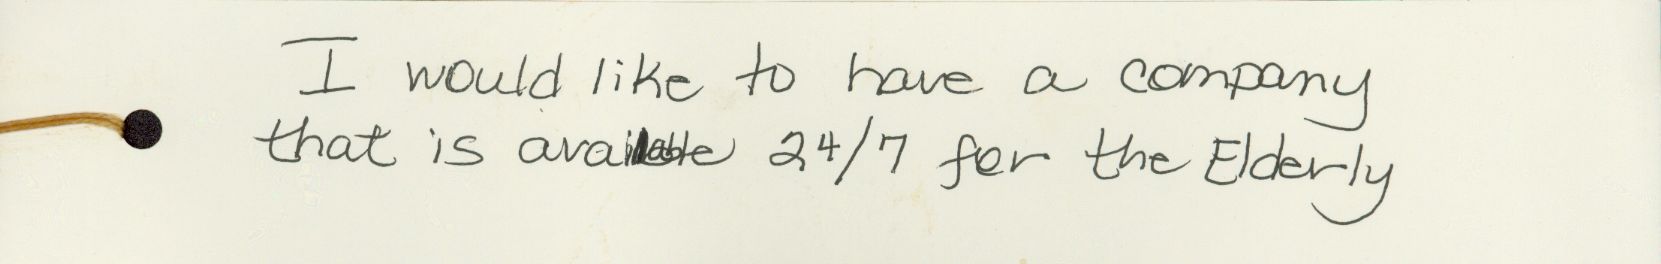 I would like to have a company
that is available 24/7 for the Elderly